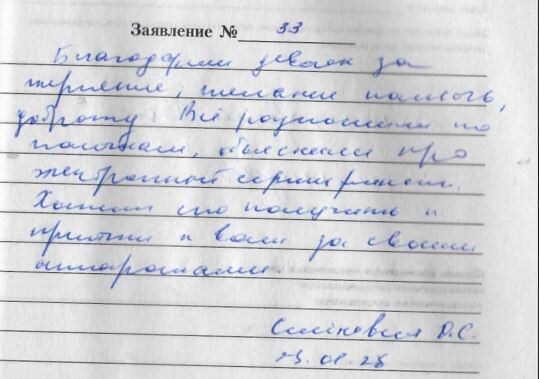 Заявление № 33
Благодарим девочек за
терпение, желание помочь,
доброту. Всё разложили по
полочкам, объяснили про
электронный сертификат.
Хотим его получить и
прийти к вам за своими
аппаратами.
О.С.